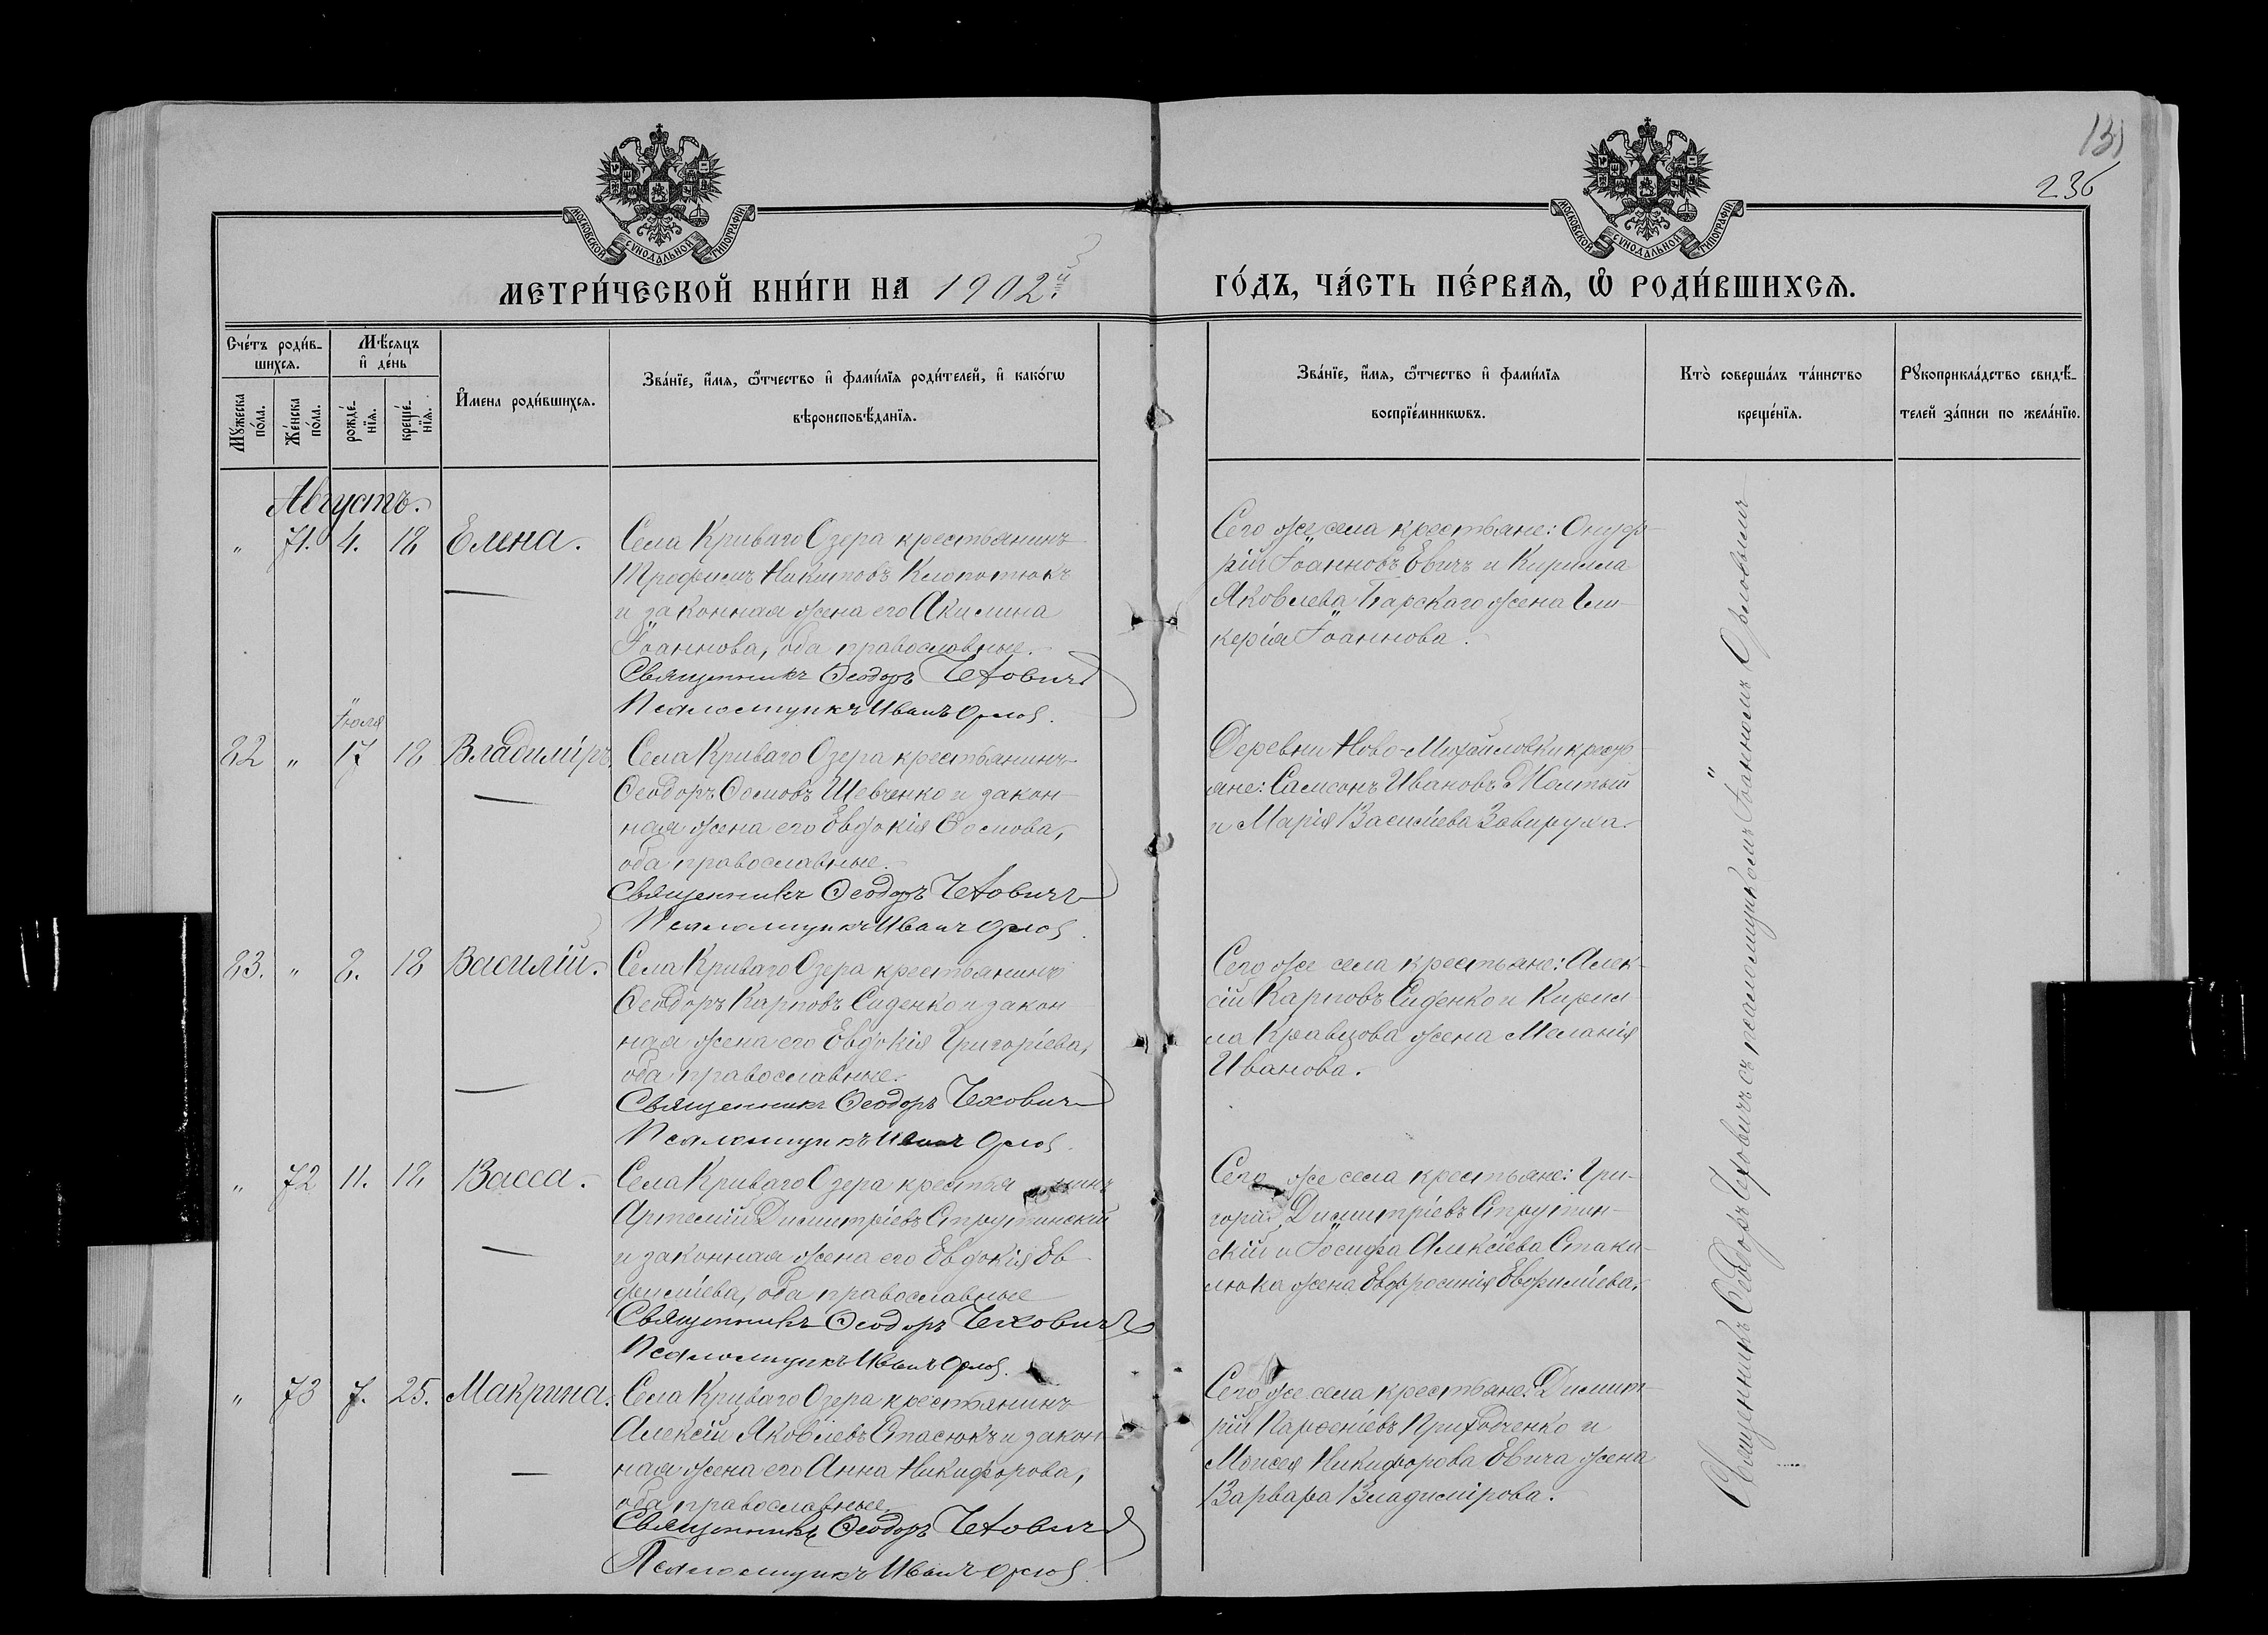 131
236
МОСКОВСКОЙ СѴНОДАЛЬНОЙ ТИПОГРАФІИ
МОСКОВСКОЙ СѴНОДАЛЬНОЙ ТИПОГРАФІИ
МЕТРИ́ЧЕСКОЙ КНИ́ГИ НА 1902й. ГО́ДЪ, ЧА́СТЬ ПЕ́РВАѦ, Ѡ҆ РОДИ́ВШИХСѦ.
Сче́тъ роди́в-
шихсѧ.
Мꙋ́жеска по́ла.
Же́нска по́ла.
Мѣ́сѧцъ
и҆ де́нь
рожде́-
нїѧ.
креще́-
нїѧ.
И҆мена роди́вшихсѧ.
Зва́нїе, и҆́мѧ, ѻ҆́тчество и҆ фами́лїѧ роди́телей, и҆ како́гѡ
вѣроисповѣ́данїѧ.
Зва́нїе, и҆́мѧ, ѻ҆́тчество и҆ фами́лїѧ
воспрїе́мникѡвъ.
Кто̀ соверша́лъ та́инство
креще́нїѧ.
Рꙋкоприкла́дство свидѣ́-
телей за́писи по жела́нїю.
Августъ.
" 71. 4. 18 Елена.
Села Криваго Озера крестьянинъ
Трофимъ Никитовъ Клопотюкъ
и законная жена его Акилина
Іоаннова, оба православные.
Священникъ Ѳеодоръ Чехович
Псаломщикъ Иванъ Орлов.
Сего же села крестьяне: Онуф-
рій Іоанновъ Евичъ и Кирилла
Яковлева Барскаго жена Гли-
керія Іоаннова.
Іюля
82 " 17 18 Владиміръ.
Села Криваго Озера крестьянинъ
Ѳеодоръ Ѳомовъ Шевченко и закон-
ная жена его Евдокія Ѳомова,
оба православные.
Священникъ Ѳеодоръ Чеховичъ
Псаломщикъ Иванъ Орлов.
Деревни Ново-Михайловки кресть-
яне: Самсонъ Ивановъ Желтый
и Марія Василіева Завируха.
83. " 8. 18 Василій.
Села Криваго Озера крестьянинъ
Ѳеодоръ Карповъ Сиденко и закон-
ная жена его Евдокія Григоріева,
оба православные.
Священникъ Ѳеодоръ Чехович
Псаломщикъ Иванъ Орлов.
Сего же села крестьяне: Алек-
сій Карповъ Сиденко и Кирил-
ла Кравцова жена Меланія
Иванова.
" 72 11. 18 Васса.
Села Криваго Озера крестьянинъ
Артемій Димитріевъ Струтинскій
и законная жена его Евдокія Ев-
фиміева, оба православные
Священникъ Ѳеодоръ Чехович
Псаломщикъ Иванъ Орлов.
Сего же села крестьяне: Гри-
горій Димитріевъ Струтин-
скій и Іосифа Алексіева
жена Евфросинія Евфиміева.
" 73 7. 25. Макрина.
Села Криваго Озера крестьянинъ
Алексій Яковлевъ Стасюкъ и закон-
ная жена его Анна Никифорова,
оба православные.
Священникъ Ѳеодоръ Чехович
Псаломщикъ Иванъ Орлов.
Сего же села крестьяне: Димит-
рій Парѳеніевъ Приходченко и
Моисея Никифорова Евича жена
Варвара Владимірова.
Священникъ Ѳеодоръ Чеховичъ съ псаломщикомъ Іоанномъ Орловымъ